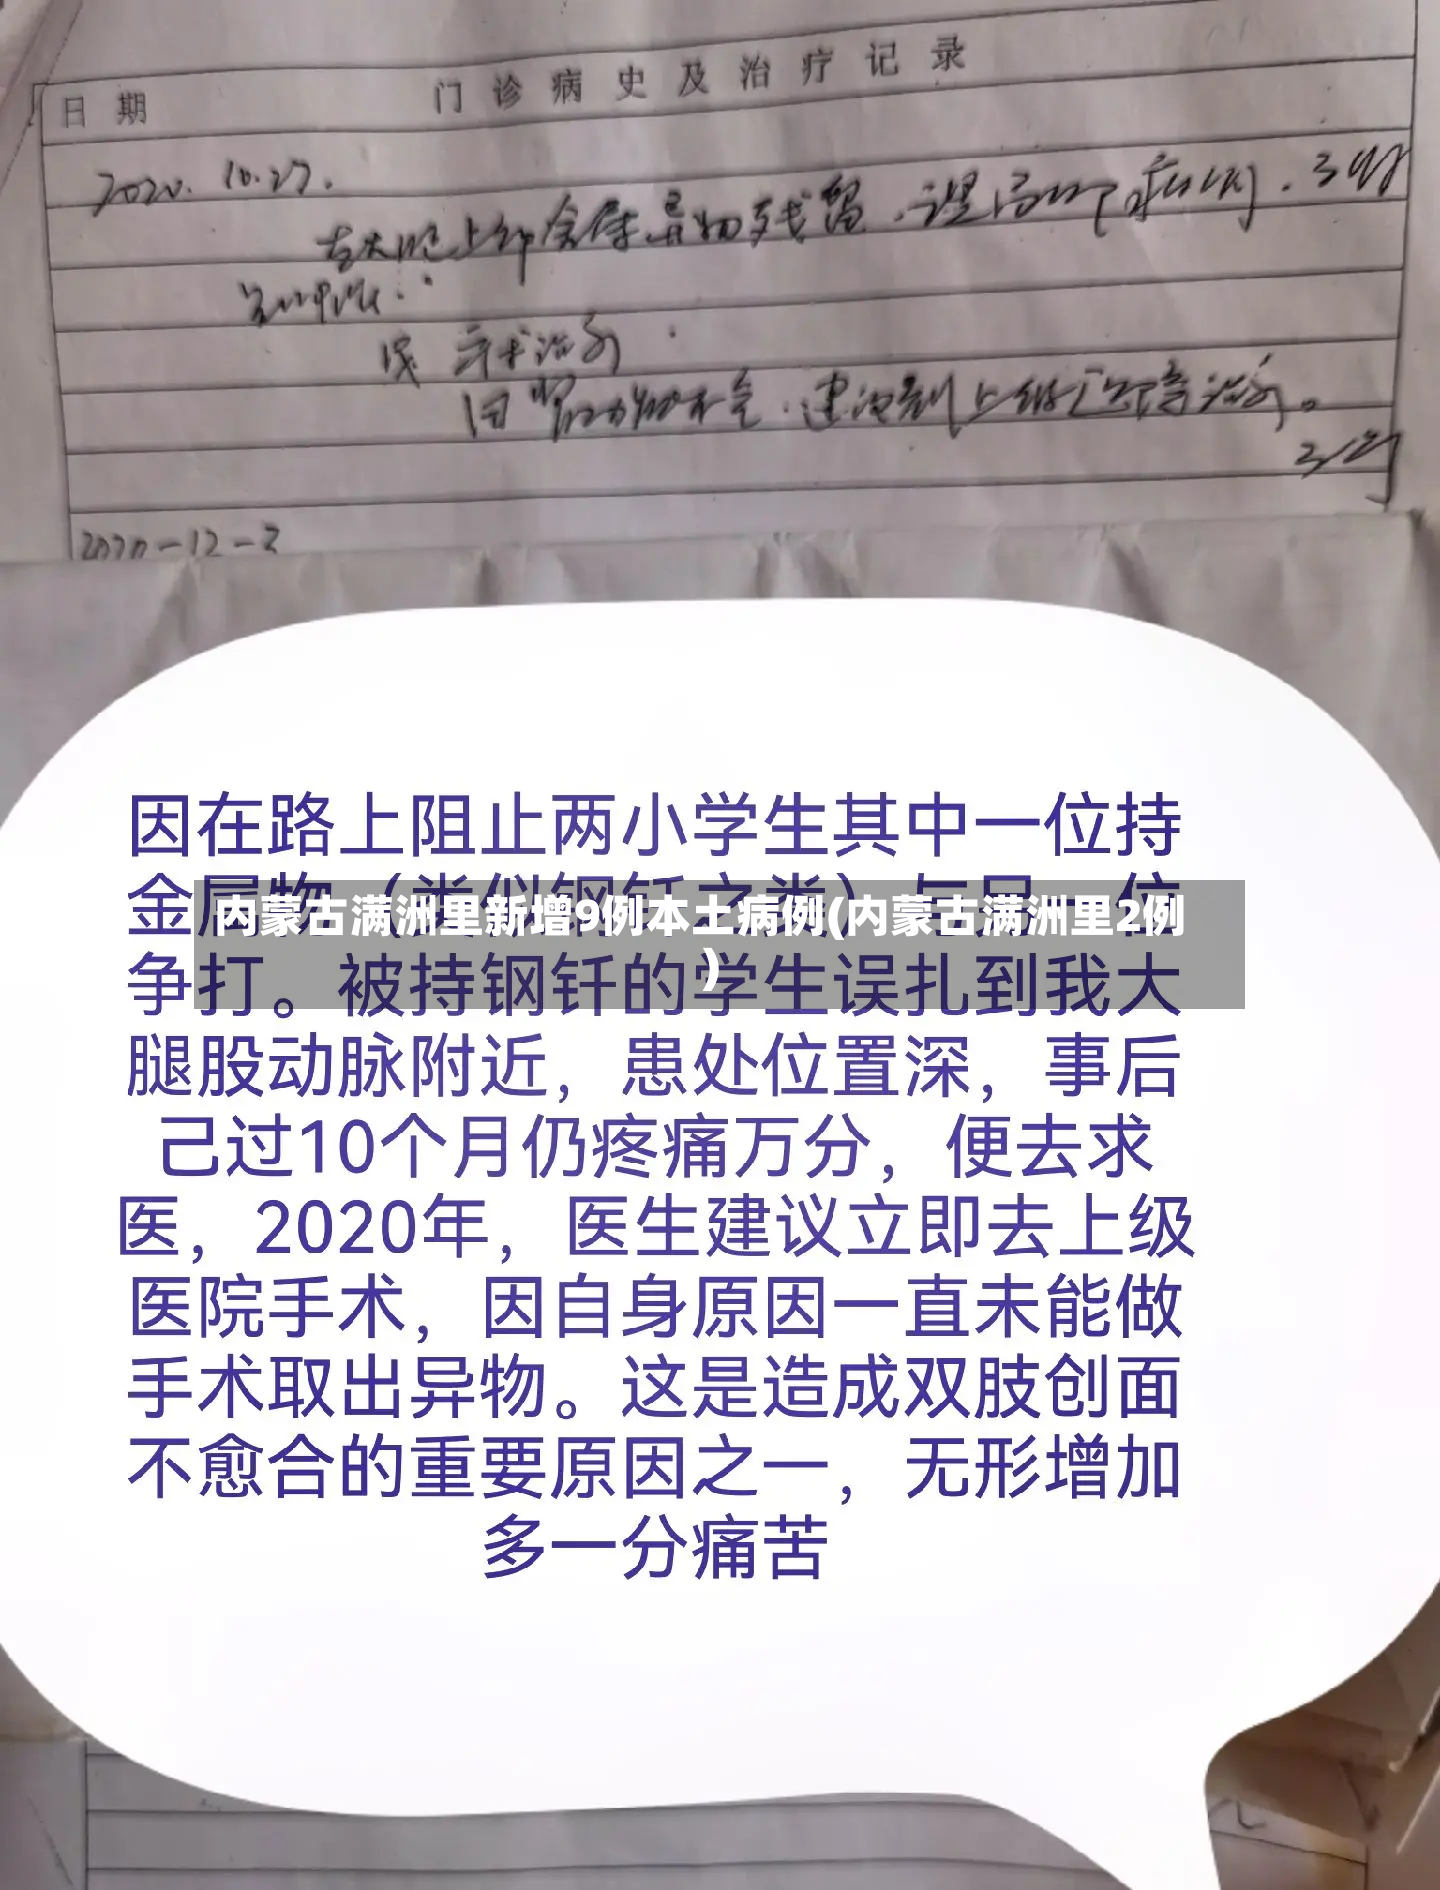 日期 门诊病史及治疗记录
2020.10.27.
左大腿上部金属异物残留
手术治疗
建议到上级医院治疗。
2020-12-2
因在路上阻止两小学生其中一位持
金属物(类似钢钎之类)与另一位
内蒙古满洲里新增9例本土病例(内蒙古满洲里2例
)
争打。被持钢钎的学生误扎到我大
腿股动脉附近，患处位置深，事后
己过10个月仍疼痛万分，便去求
医，2020年，医生建议立即去上级
医院手术，因自身原因一直未能做
手术取出异物。这是造成双肢创面
不愈合的重要原因之一，无形增加
多一分痛苦